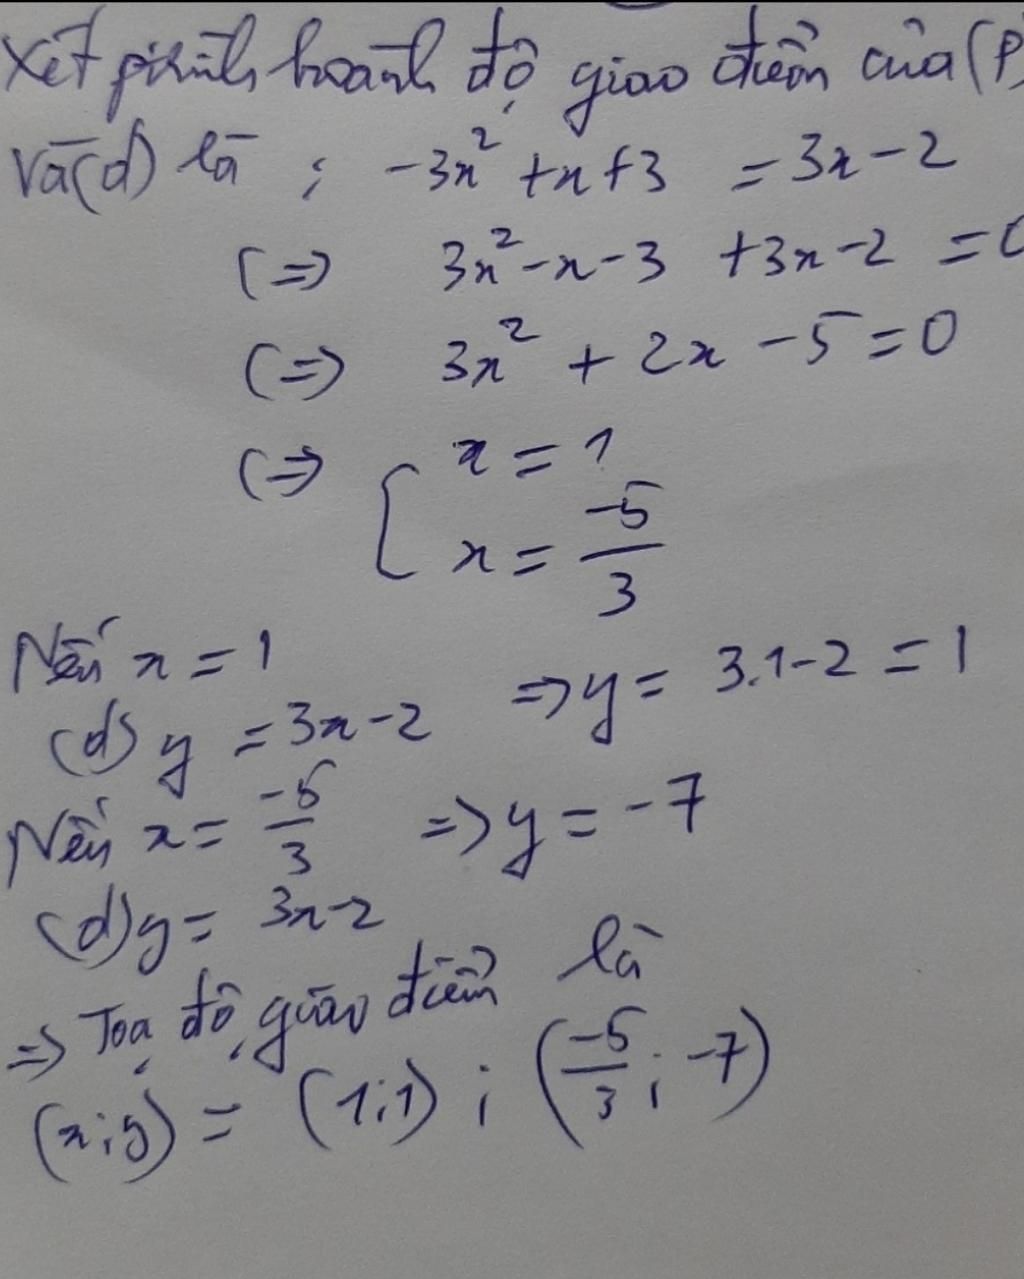 Xét ptrình hoành độ giao điểm của (P)
và (d) là : -3x² + x + 3 = 3x - 2
(=) 3x² - x - 3 + 3x - 2 = 0
(=) 3x² + 2x - 5 = 0
(=) [ x = 1
x = -5/3
Nếu x = 1
(d) y = 3x - 2 => y = 3.1 - 2 = 1
Nếu x = -5/3 => y = -7
(d) y = 3x - 2
=> Toạ độ giao điểm là
(x;y) = (1;1) ; (-5/3 ; -7)